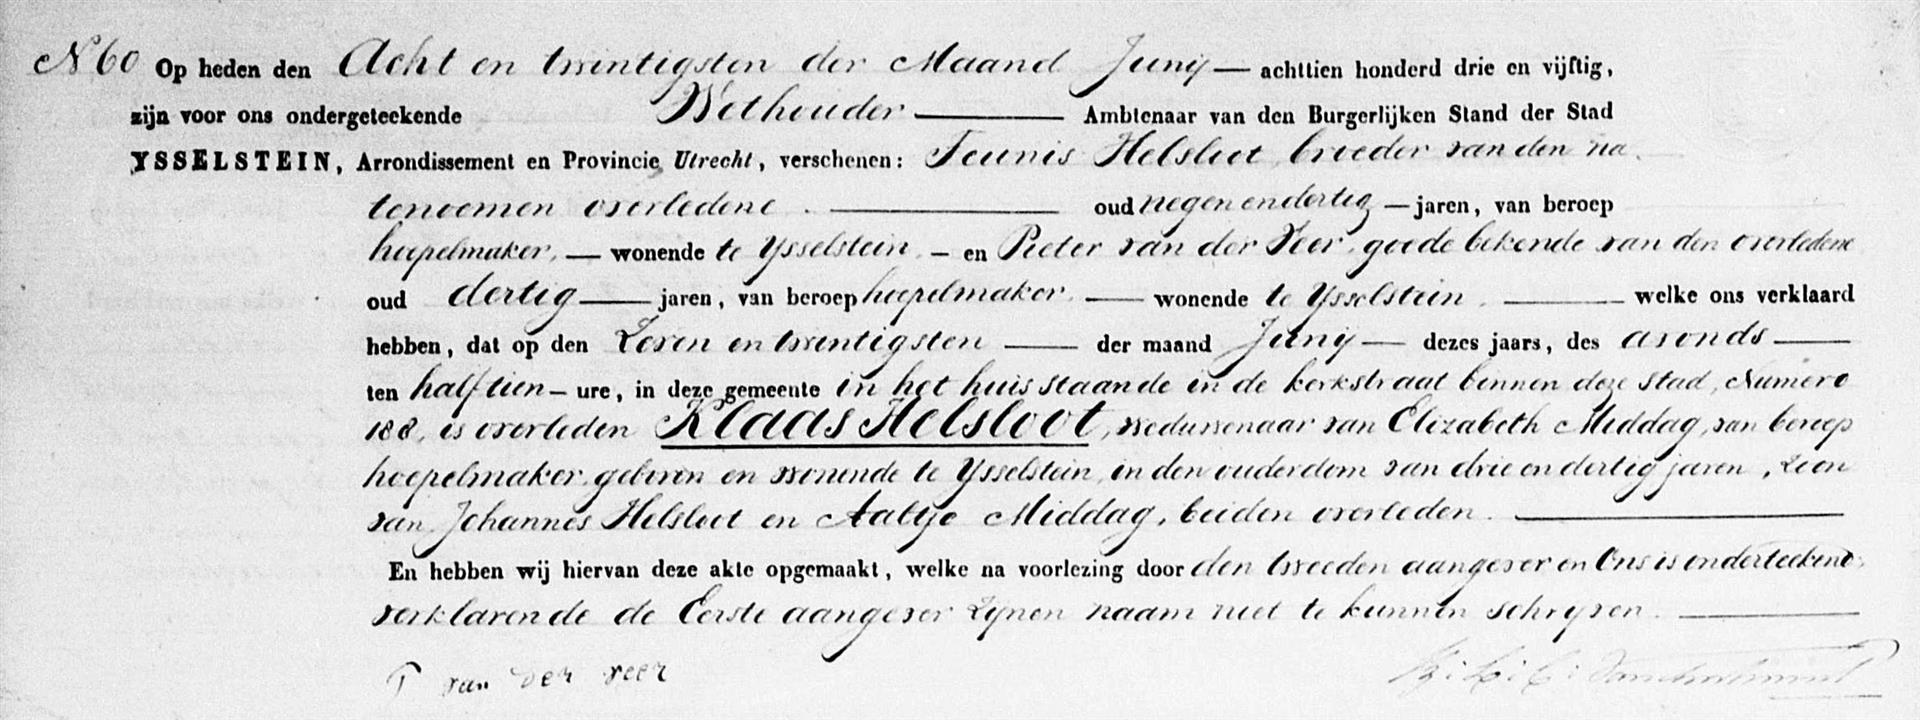 N 60 Op heden den Acht en twintigsten der Maand Junij — achttien honderd drie en vijftig,
zijn voor ons ondergeteekende Wethouder — Ambtenaar van den Burgerlijken Stand der Stad
YSSELSTEIN, Arrondissement en Provincie Utrecht, verschenen: Teunis Helsloot, broeder van den na
tenoemen overledene — oud negen en dertig — jaren, van beroep
hoepelmaker, — wonende te Ysselstein, — en Pieter van der Veer, goede bekende van den overledene
oud dertig — jaren, van beroep hoepelmaker, — wonende te Ysselstein, — welke ons verklaard
hebben, dat op den Zeven en twintigsten — der maand Junij — dezes jaars, des avonds —
ten half tien — ure, in deze gemeente in het huis staande in de kerkstraat binnen deze stad, Numero
188, is overleden Klaas Helsloot, weduwenaar van Elizabeth Middag, van beroep
hoepelmaker, geboren en wonende te Ysselstein, in den ouderdom van drie en dertig jaren, Zoon
van Johannes Helsloot en Aaltje Middag, beiden overleden. —
En hebben wij hiervan deze akte opgemaakt, welke na voorlezing door den tweeden aangever en Ons is onderteekend,
verklarende de Eerste aangever zijnen naam niet te kunnen schrijven. —
P van der veer